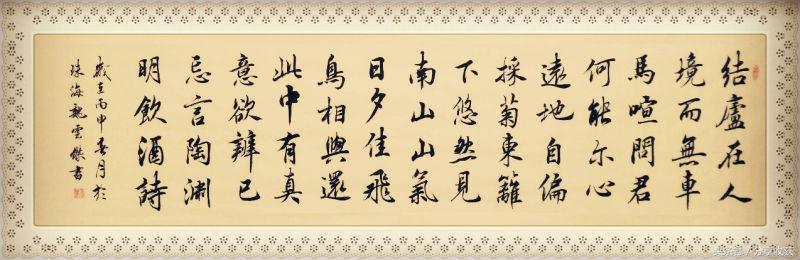 結廬在人
境而無車
馬喧問君
何能尔心
遠地自偏
採菊東籬
下悠然見
南山山氣
日夕佳飛
鳥相與還
此中有真
意欲辨已
忘言陶淵
明飲酒詩
歲在丙申春月於
珠海魏雲傑書
头条号 / 分享收获